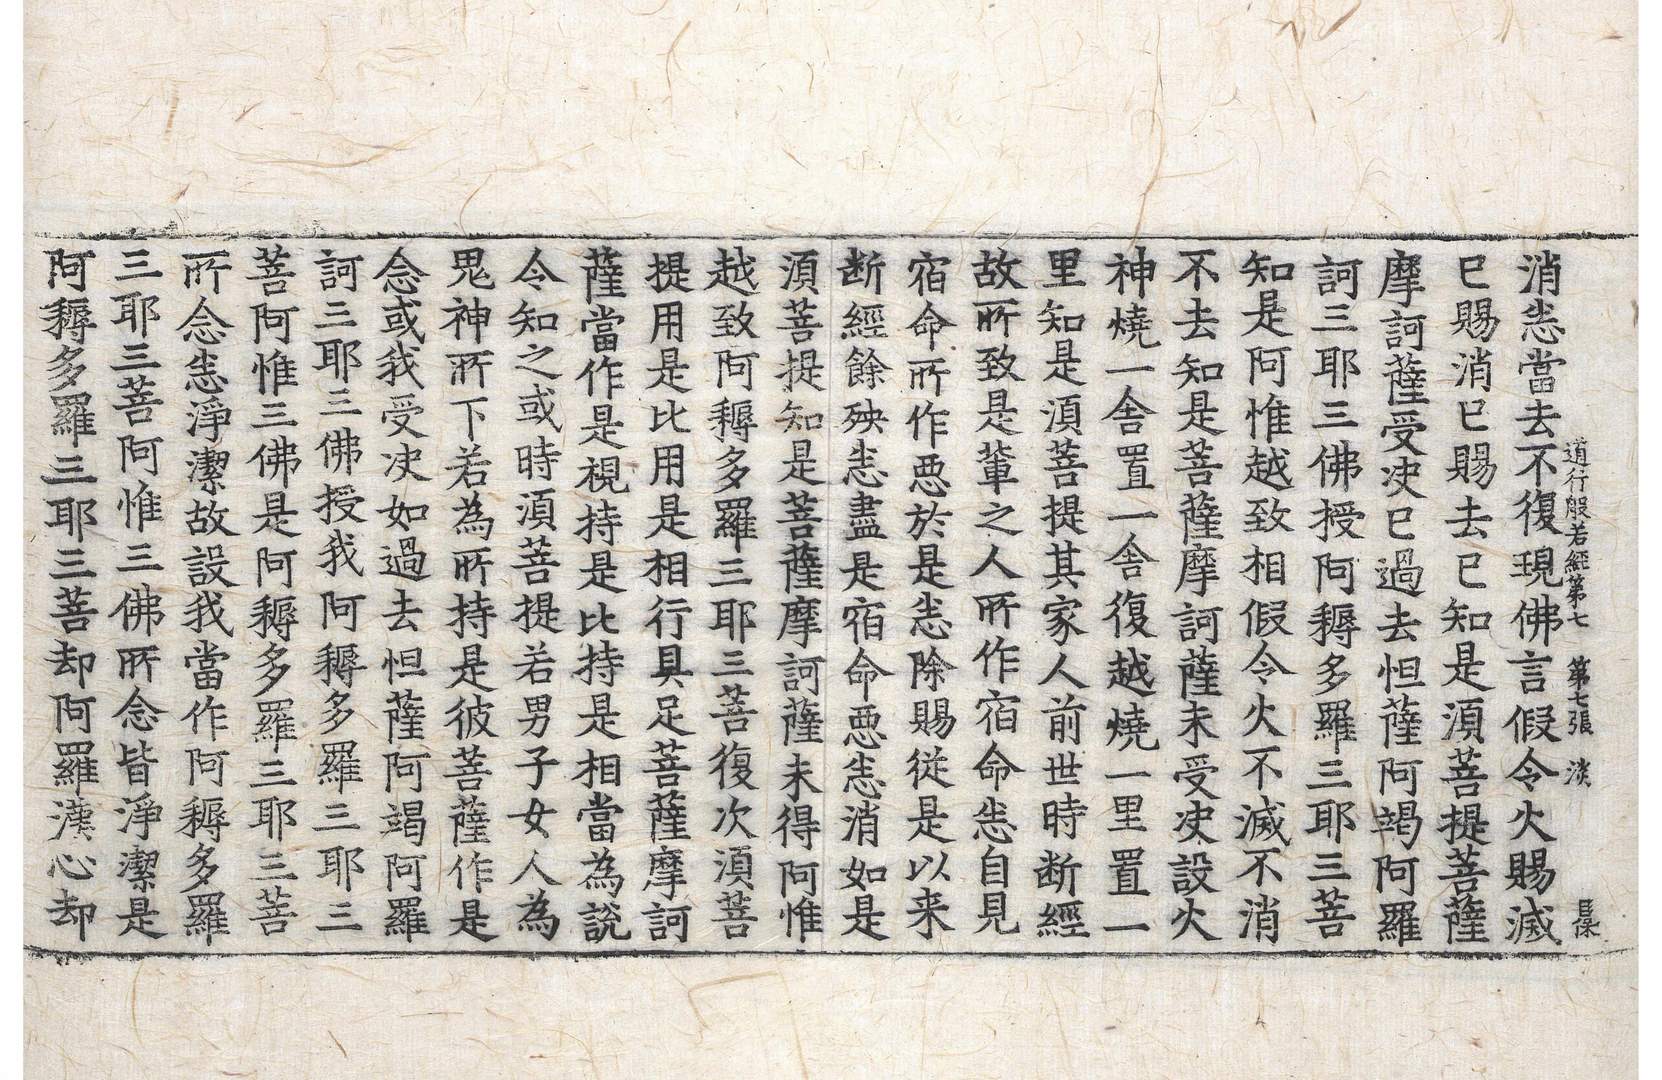 道行般若經第七 第七張 淡
消㤀當去不復現佛言假令火賜滅
已賜消已賜去已知是湏菩提菩薩
摩訶薩受决已過去怛薩阿竭阿羅
訶三耶三佛授阿耨多羅三耶三菩
知是阿惟越致相假令火不滅不消
不去知是菩薩摩訶薩未受决設火
神燒一舍置一舍復越燒一里置一
里知是湏菩提其家人前世時断經
故所致是輩之人所作宿命㤀自見
宿命所作悪於是㤀除賜從是以来
断經餘殃㤀盡是宿命悪㤀消如是
湏菩提知是菩薩摩訶薩未得阿惟
越致阿耨多羅三耶三菩復次湏菩
提用是比用是相行具足菩薩摩訶
薩當作是視持是比持是相當為說
令知之或時湏菩提若男子女人為
鬼神所下若為所持是彼菩薩作是
念或我受决如過去怛薩阿竭阿羅
訶三耶三佛授我阿耨多羅三耶三
菩阿惟三佛是阿耨多羅三耶三菩
所念㤀淨潔故設我當作阿耨多羅
三耶三菩阿惟三佛所念皆淨潔是
阿耨多羅三耶三菩却阿羅漢心却